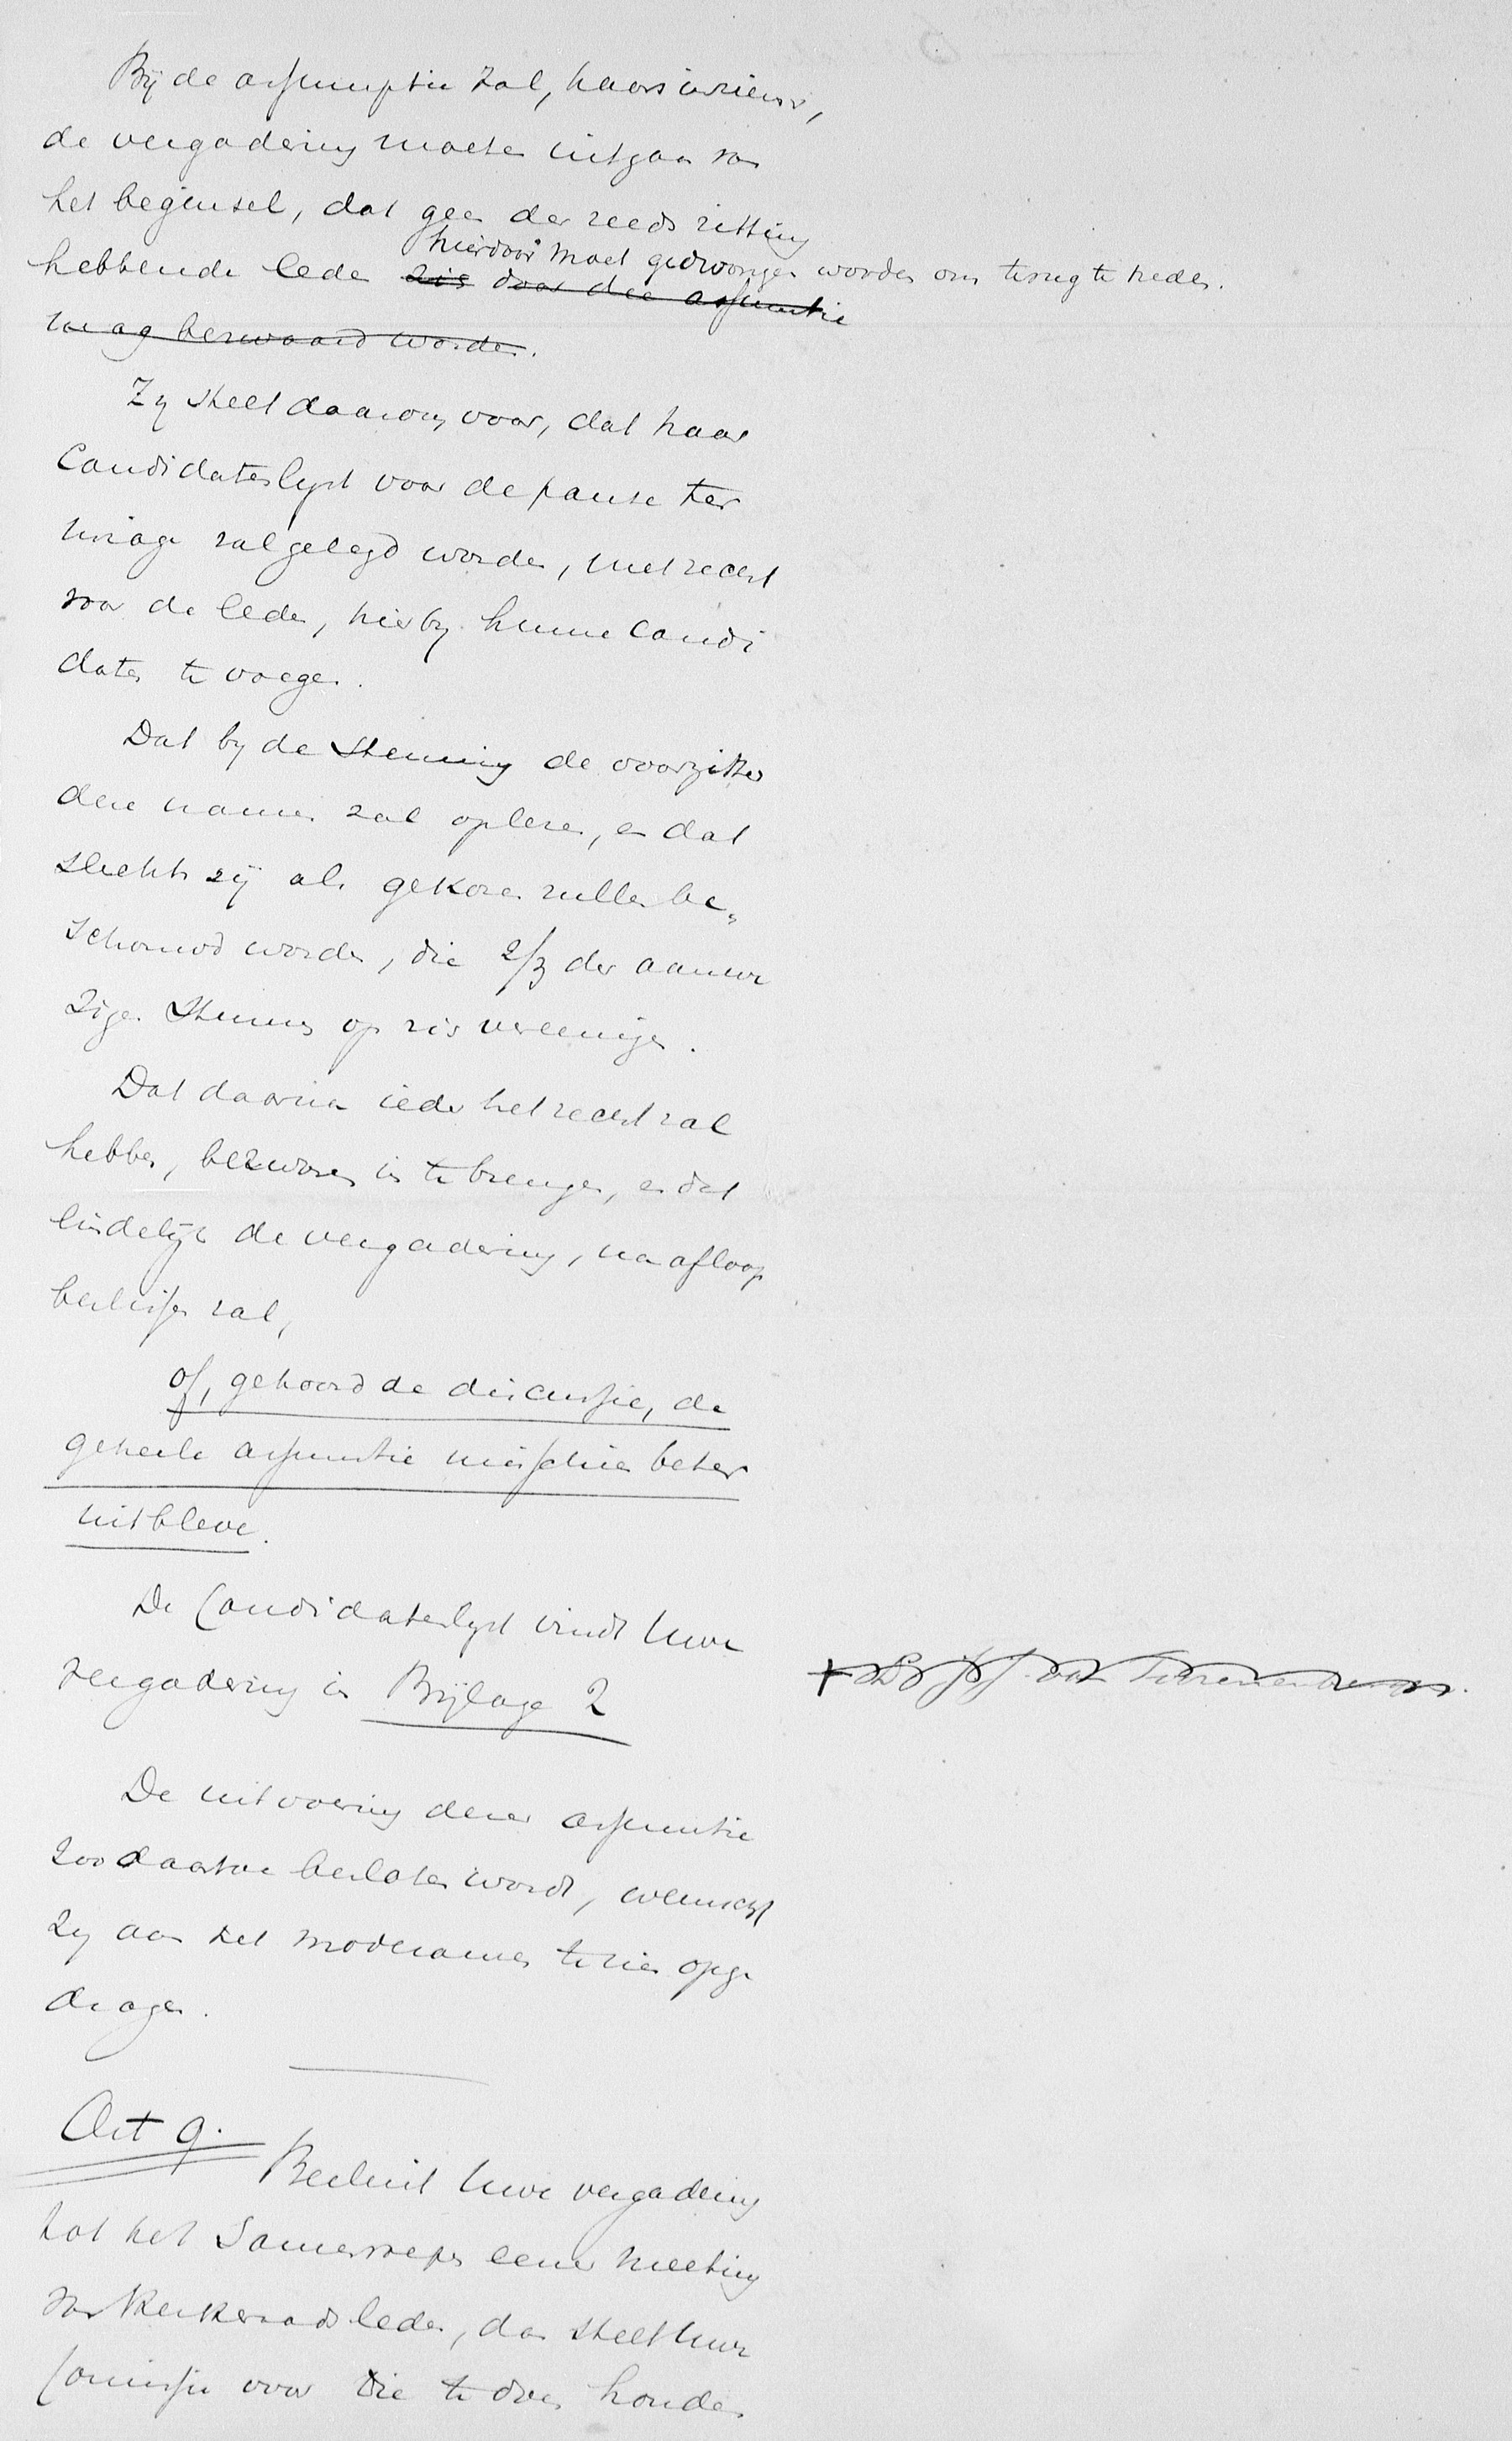 Bij de assumptie zal, haers inziens,
de vergadering moeten uitgaan van
het beginsel, dat geen der reeds zitting
hierdoor moet gedwongen worden om terug te treden.
hebbende leden zich door die assumtie
bezwaard worden.
Zy stelt daarom voor, dat haar
Candidatenlyst voor de pauze ter
visage zal gelegd worden, met recht
voor de leden, hierby hunne Candi
daten te voegen.
Dat by de Stemming de voorzitter
deze namen zal oplezen, en dat
slechts zij als gekozen zullen be„
schouwd worden, die 2/3 der aanwe
zige Stemmen op zich vereenigen.
Dat daarna ieder het recht zal
hebben, bezwaren in te brengen, en dat
eindelijk de vergadering, na afloop
beslissen zal,
of, gehoord de discussie, de
geheele assumtie misschien beter
uitbleve.
De Candidatenlyst vindt Uwe
vergadering in Bijlage 2
De uitvoering dezer assumtie
zoo daartoe besloten wordt, wenscht
zy aan het moderamen te zien opge
dragen.
Art 9.
Besluit Uwe vergadering
tot het Samenroepen eener meeting
van Kerkeraadsleden, dan stelt Uwe
Comissie voor die te doen houden